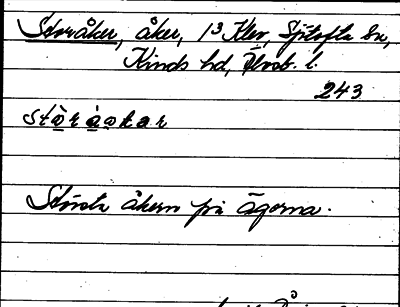 Storåker, åker, 1³ Klev, Sjötofta sn,
Kinds hd, Älvsb. l.
243
stòràokar
Största åkern på ägorna.